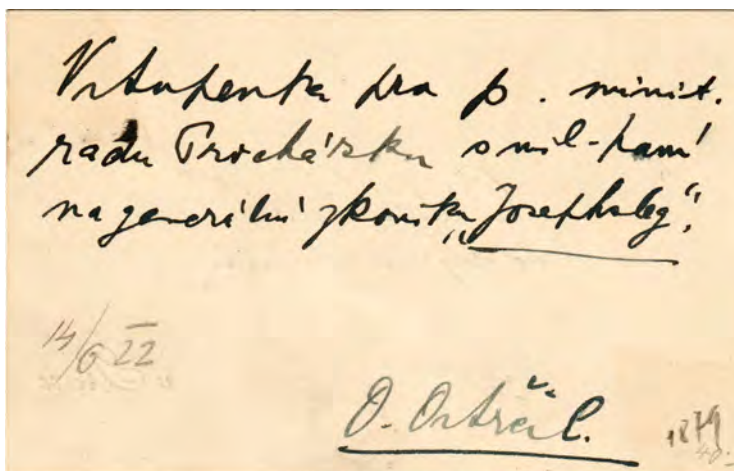 Vstupenka pro p. minist.
radu Procházku s mil. paní
na generální zkoušku „Josephsleg“.
14/6 22
O. Ostrčil.
1879
40.-